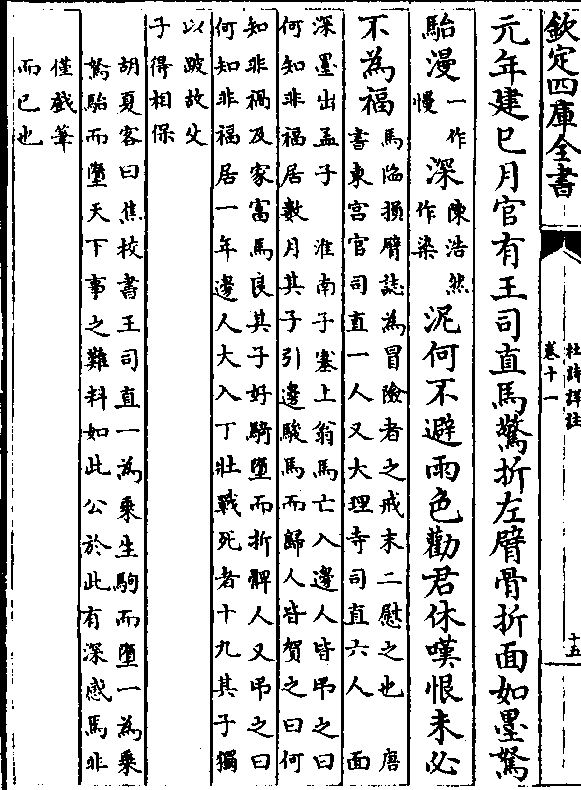 欽定四庫全書
杜詩詳註
卷十一
十五
元年建巳月官有王司直馬驚折左臂骨折面如墨駑
駘漫一作慢深陳浩然作染泥何不避雨色勸君休嘆恨未必
不為福
馬臨損臂誌為冒險者之戒末二慰之也　唐
書東宮官司直一人又大理寺司直六人　面
深墨出孟子　淮南子塞上翁馬亡入邊人皆弔之曰
何知非福居數月其子引邊駿馬而歸人皆賀之曰何
知非禍及家富馬良其子好騎墮而折髀人又弔之曰
何知非福居一年邊人大入丁壯戰死者十九其子獨
以跛故父
子得相保
胡夏客曰焦校書王司直一為乘生駒而墮一為乘
駑駘而墮天下事之難料如此公於此有深感焉非
僅戲筆
而已也